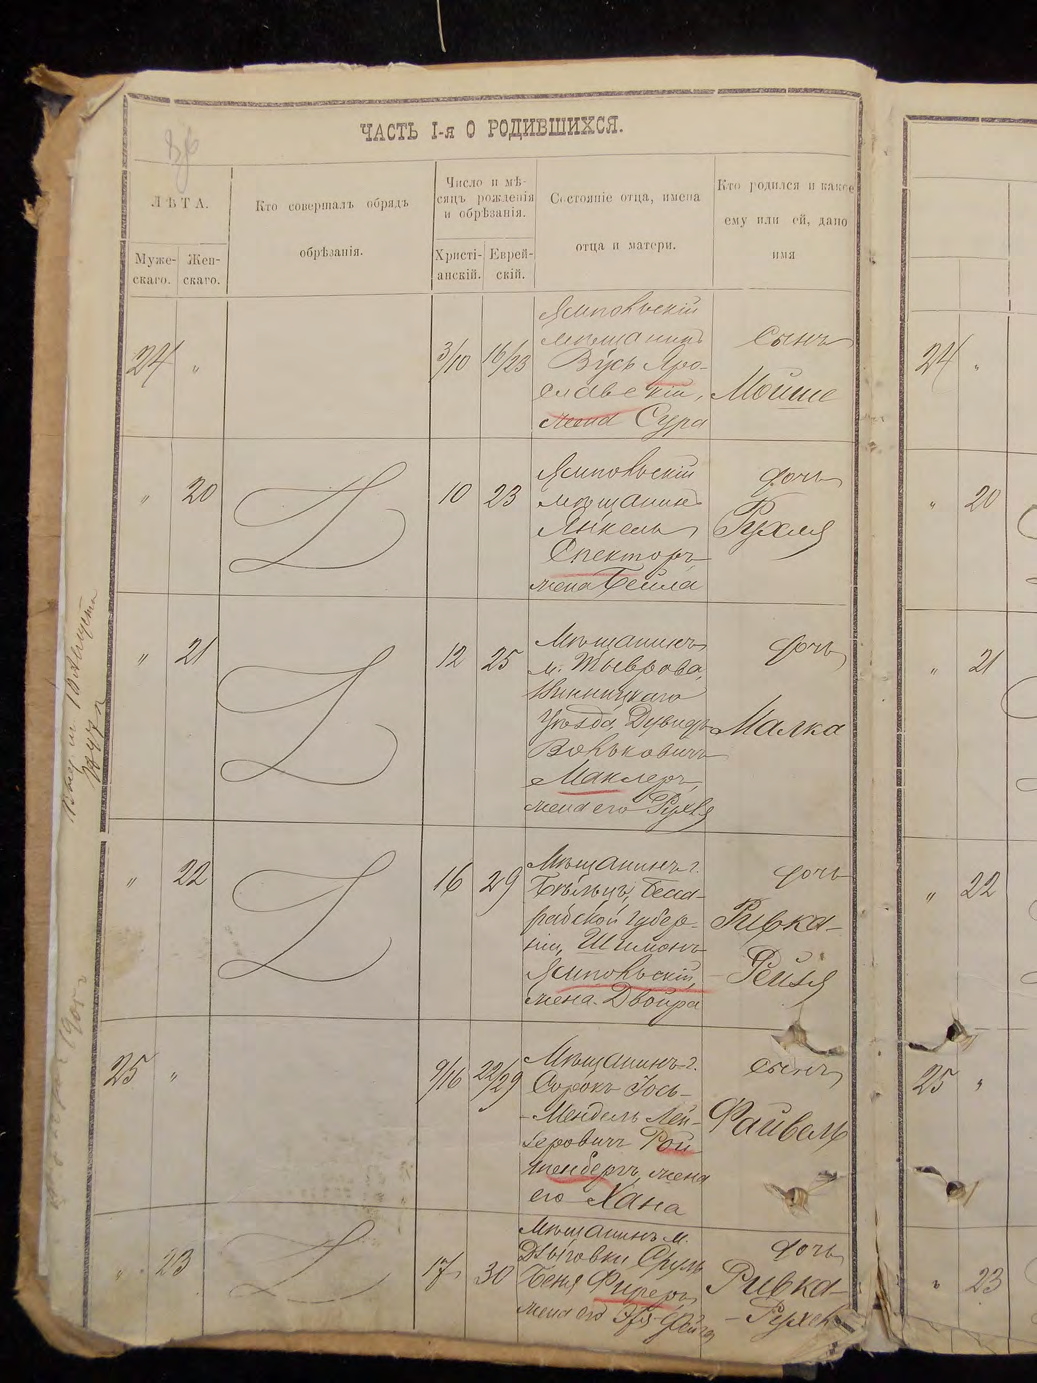 ЧАСТЬ I-я О РОДИВШИХСЯ.
ЛѢТА.
Муже-
скаго.
Жен-
скаго.
Кто совершалъ обрядъ
обрѣзанія.
Число и мѣ-
сяцъ рожденія
и обрѣзанія.
Христі-
анскій.
Еврей-
скій.
Состояніе отца, имена
отца и матери.
Кто родился и какое
ему или ей, дано
имя
24 „ 3/10 16/23
Ямпольскій
мѣщанинъ
Яро-
славскій,
жена Сура
сынъ
Мойше
24 „
„ 20 10 23
Ямпольскій
мѣщанинъ
Янкель
Спекторъ,
жена Бейла
дочь
Рухля
„ 20
„ 21 12 25
Мѣщанинъ
м. Тыврова,
Винницкаго
уѣзда Дувидъ
Берьковичъ
Маклеръ,
жена его Рухля
дочь
Малка
„ 21
„ 22 16 29
Мѣщанинъ г.
Бѣльцъ, Бесса-
рабской губер-
ніи, Шимонъ
Ямпольскій,
жена Двойра
дочь
Ривка-
-Рейзя
„ 22
25 „ 9/16 22/29
Мѣщанинъ г.
Сорокъ Іось-
-Мендель Лей-
зеровичъ Рой-
тенбергъ, жена
его Хана
сынъ
Файвель
25 „
„ 23 17 30
Мѣщанинъ м.
Дзыговки Сруль
Беня Фиреръ,
жена его
дочь
Ривка-
-Рухель
„ 23